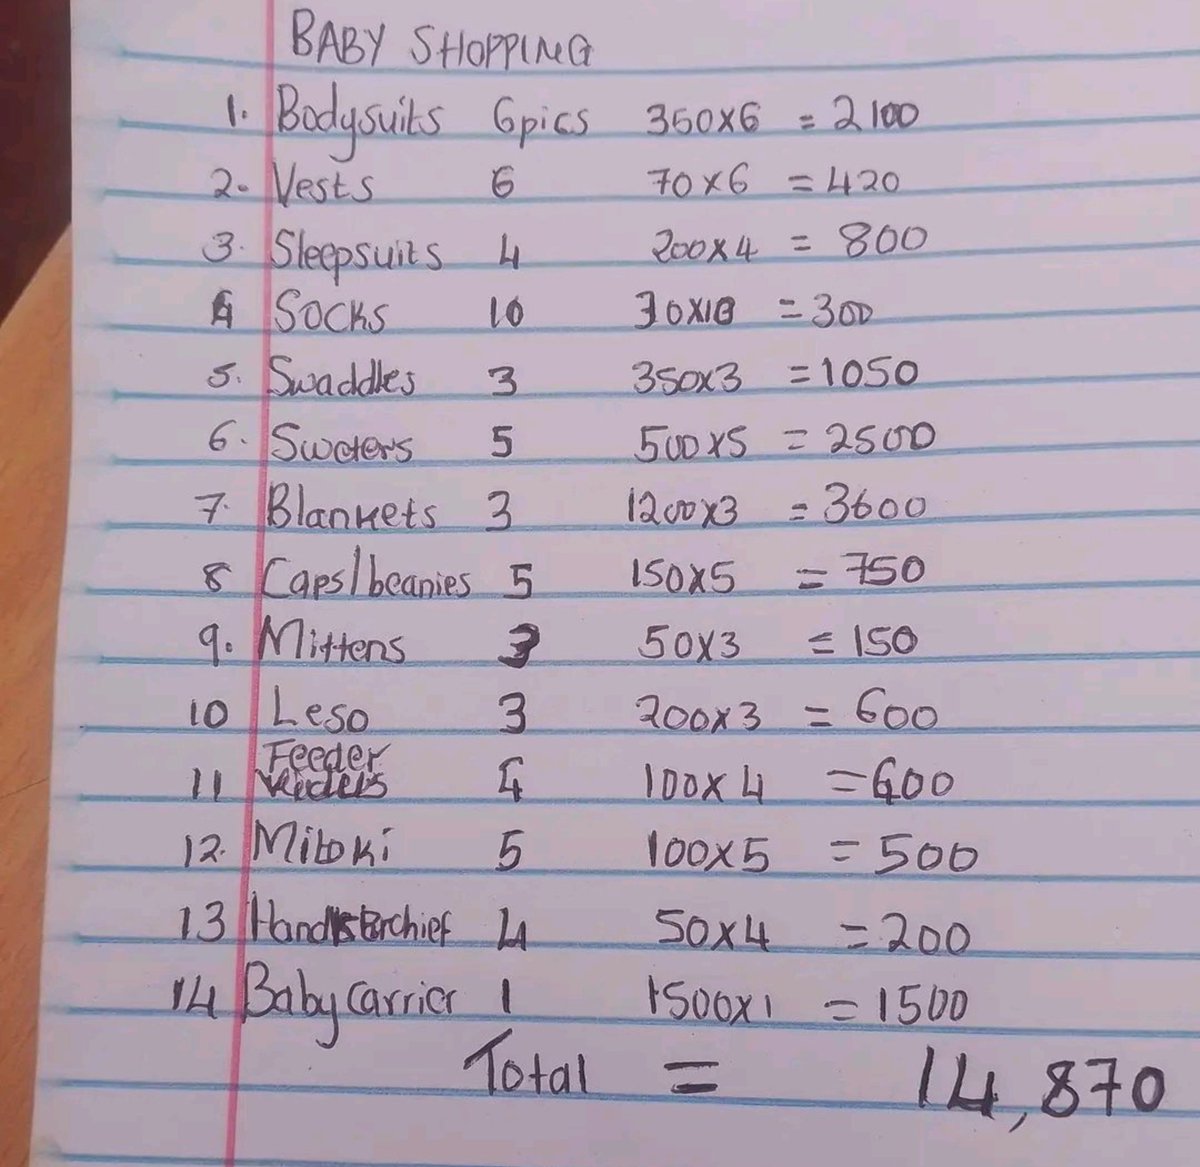 BABY SHOPPING
1. Bodysuits 6pics 350x6 = 2100
2. Vests 6 70x6 = 420
3. Sleepsuits 4 200x4 = 800
4 Socks 10 30x10 = 300
5. Swaddles 3 350x3 = 1050
6. Sweters 5 500x5 = 2500
7. Blankets 3 1200x3 = 3600
8 Caps/beanies 5 150x5 = 750
9. Mittens 3 50x3 = 150
10 Leso 3 200x3 = 600
Feeder
11 4 100x4 = 400
12. Mitoki 5 100x5 = 500
13 Handkerchief 4 50x4 = 200
14 Baby carrier 1 1500x1 = 1500
Total = 14,870